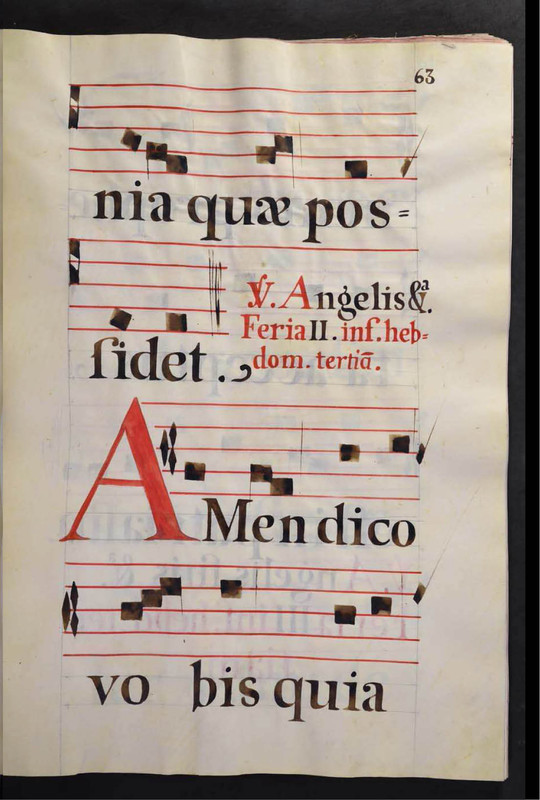 63
nia quæ pos=
℣. Angelis &ª.
Feria II. inf. heb=
ſidet.
dom. tertiā.
AMen dico
vo bis quia